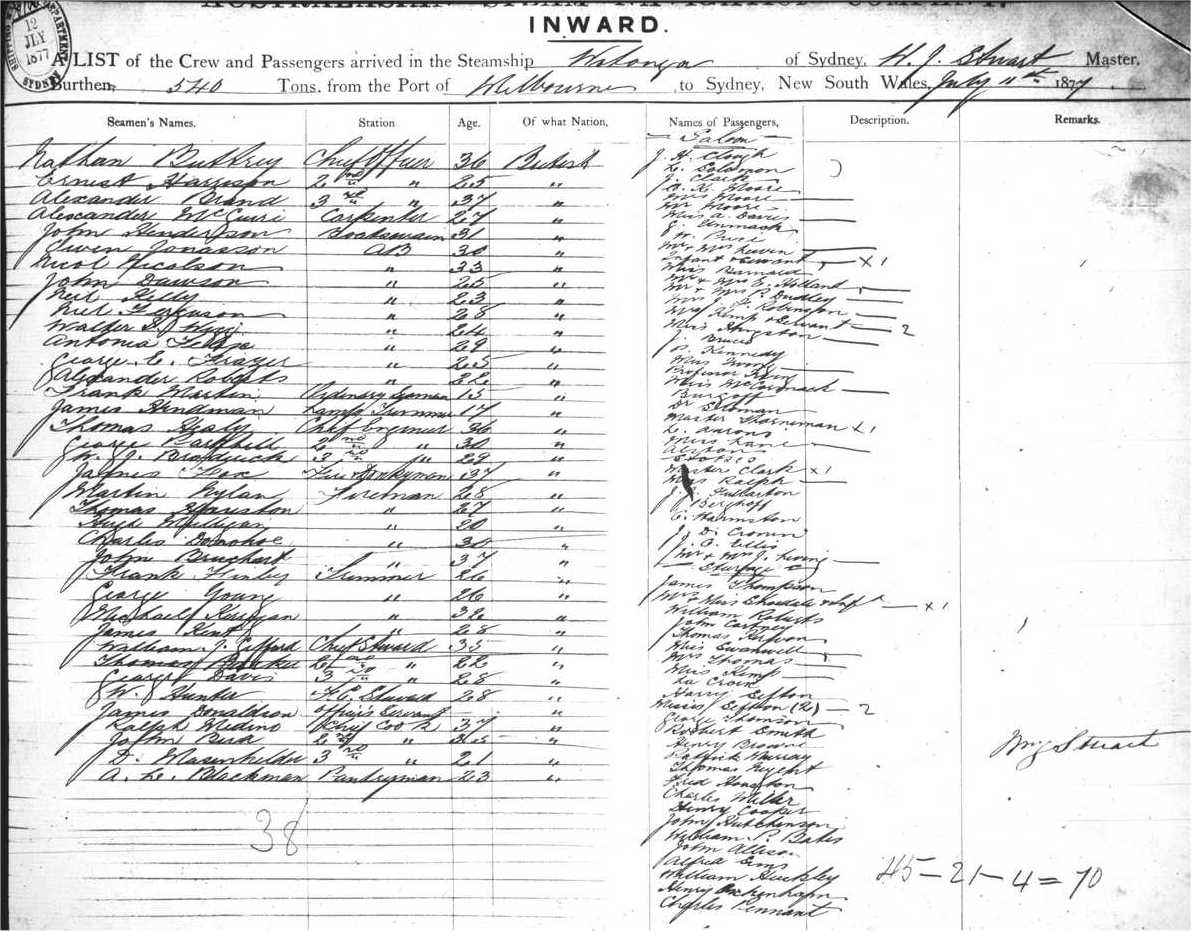 AUSTRALASIAN STEAM NAVIGATION COMPANY.
INWARD.
12
JLY
1877
SHIPPING DEPARTMENT
SYDNEY
A LIST of the Crew and Passengers arrived in the Steamship Wotonga of Sydney, H. J. Stuart Master,
Burthen, 540 Tons, from the Port of Melbourne to Sydney, New South Wales, July 11th 1877
Seamen's Names. Station Age. Of what Nation, Names of Passengers, Description. Remarks.
Nathan Buttrey Chief Officer 36 British
Ernest Harrison 2nd " 25 "
Alexander Brand 3rd " 37 "
Alexander McGuiri Carpenter 27 "
John Henderson 31 "
Swen Jonasson AB 30 "
Nicol Nicolson " 33 "
John Dawson " 25 "
Neil Kelly " 23 "
Neil Ferguson " 28 "
Walter " 24 "
Antonia " 29 "
George E. Frazer " 25 "
Alexander Roberts " 22 "
Frank Martin Ordinary Seaman 15 "
James Hindman Lamp Trimmer 17 "
Thomas Healy Chief Engineer 36 "
George Campbell 2nd " 30 "
W. J. Brodrick 3rd " 29 "
James Fox Fire & Donkyman 37 "
Martin Nylan Fireman 28 "
Thomas " 27 "
Hugh Milligan " 20 "
Charles Donohoe " 30 "
John " 37 "
Frank Finley Trimmer 26 "
George Young " 26 "
Michael " 32 "
James Kent " 28 "
William J. Gifford Chief Steward 35 "
Thomas 2nd " 22 "
George Davis 3rd " 28 "
W. Hunter F. C. Steward 28 "
James Donaldson Officers Servant "
Ralph Medino Chief Cook 37 "
John Bird 2nd " "
D. 3rd " 21 "
A. L. Blackman Pantryman 23 "
38
Saloon
J. H. Clough
L. Solomon
J. Clark
Moore
Mrs Moore
Mr Moore
Miss A. Davies
J.
W. Price
Mr & Mrs Levien
Infant & Servant x 1
Miss Barnald
Mr & Mrs E. Holland
Mr & Mrs P. Dudley
Mrs J. J. Robinson
Mrs Kemp & Servant 2
Miss Kingston
J. Bruce
Kennedy
Mrs
Professor
Miss McCormack
Dr
Master x 1
L. Aarons
Miss Lane
Master Clark x 1
Miss Ralph
J. Fullarton
Berghoff
C. Harmston
J. D. Cronin
J. C. Ellis
Mr & Mrs J.
Steerage
James Thompson
Mr & Mrs & Inft x 1
William Roberts
John
Thomas
Miss Swanwell
Mrs Thomas
Miss Kemp
La Croix
Harry Sefton
Misses Sefton (2) 2
George Thomson
Robert Smith
Henry Browne
Patrick Murray
Thomas Nugent
Fred Houston
Charles Miller
Henry Cooper
John Hutchinson
William P. Bates
John Allison
Alfred Sims
William Huckley
Henry
Charles Pennant
Stuart
45 – 21 – 4 = 70